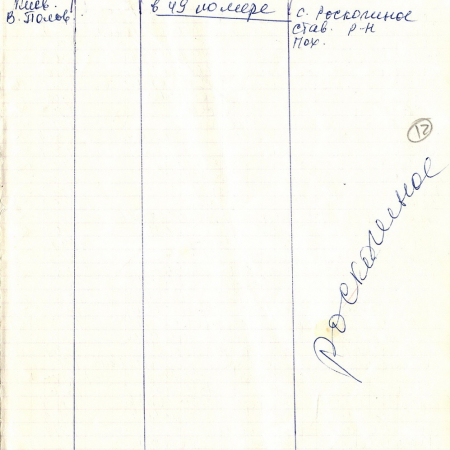 Киев.
В. Попов
в 49 номере
с. Роскошное
став. р-н
Пох.
12
Роскошное